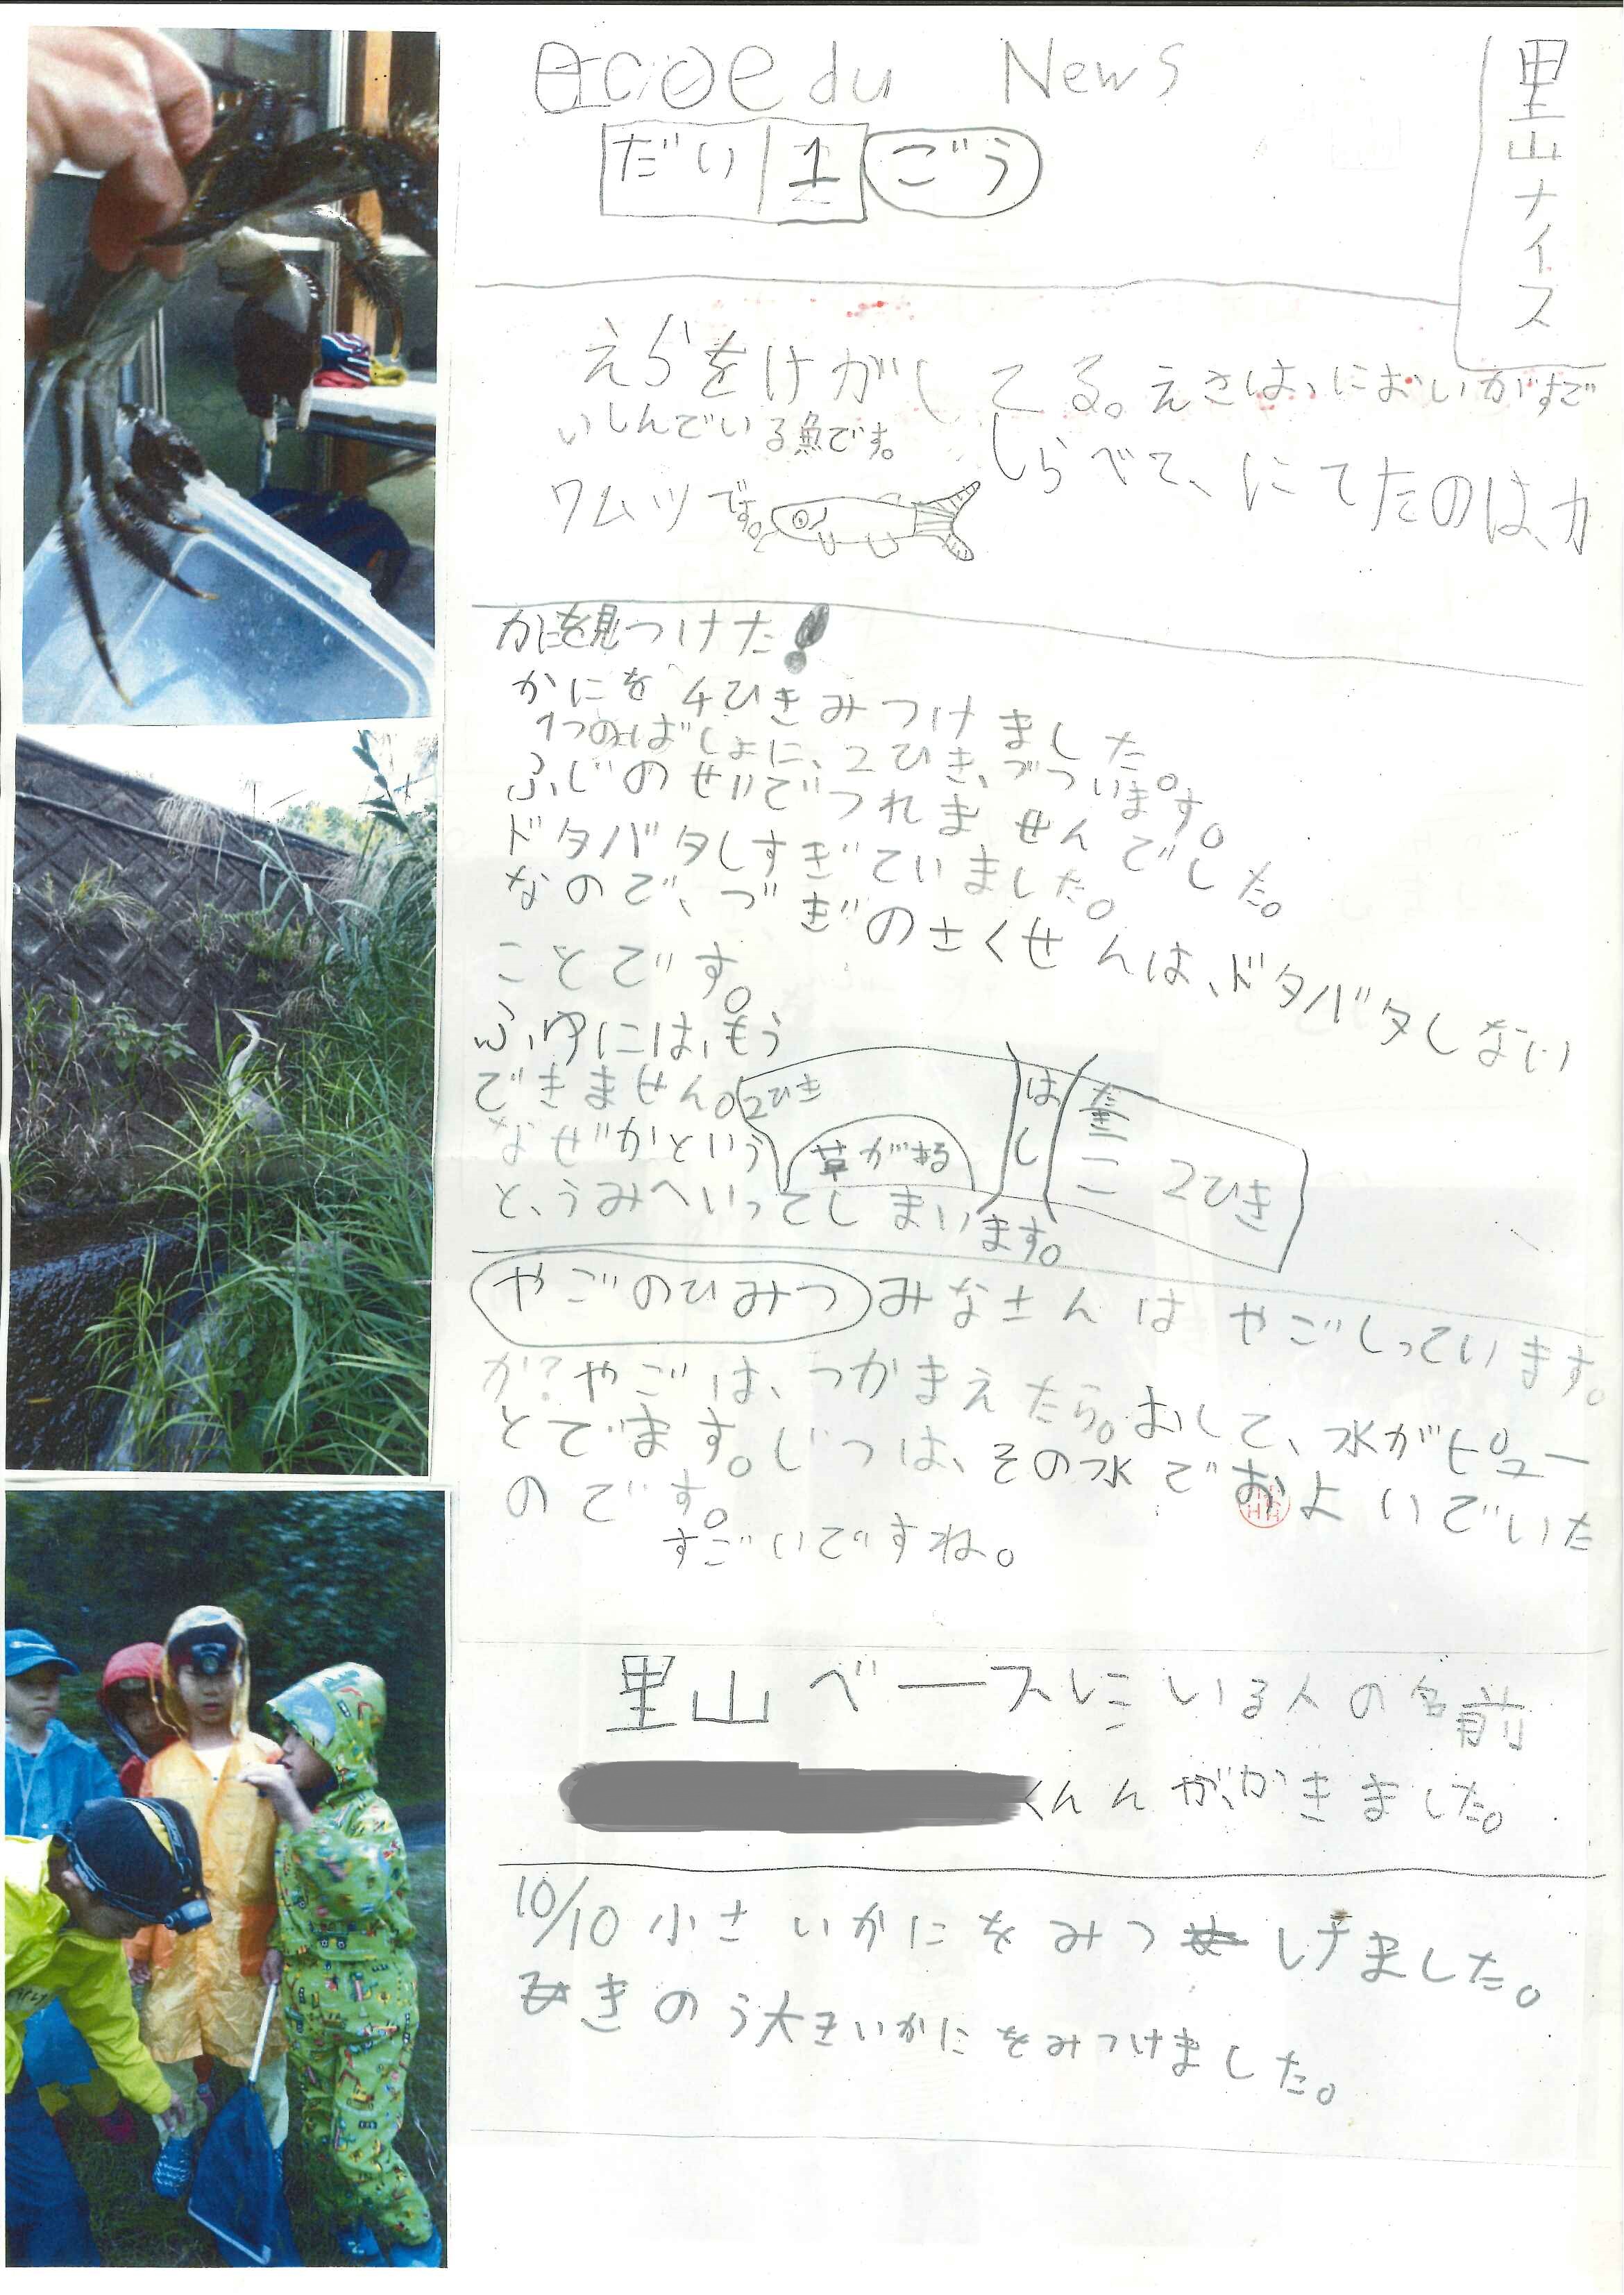 ecoedu News
だい1ごう
里山ナイス
えらをけがしてる。えさは、においがすご
いしんでいる魚です。
しらべて、にてたのは、カ
ワムツです。
かにを見つけた!
かにを4ひきみつけました。
1つのばしょに、2ひき、づついます。
ふじのせいでつれませんでした。
ドタバタしすぎていました。
なので、づぎのさくせんは、ドタバタしない
ことです。
ふゆには、もう
できません。
なぜかという
と、うみへいってしまいます。
2ひき
草がある
はし
2ひき
やごのひみつ
みなさんは やごしっています。
か?やごは、つかまえたら。おして、水がピュー
とでます。じつは、その水でおよいでいた
のです。
すごいですね。
里山ベースにいる人の名前
くんんが、かきました。
10/10 小さいかにをみつけました。
きのう大きいかにをみつけました。